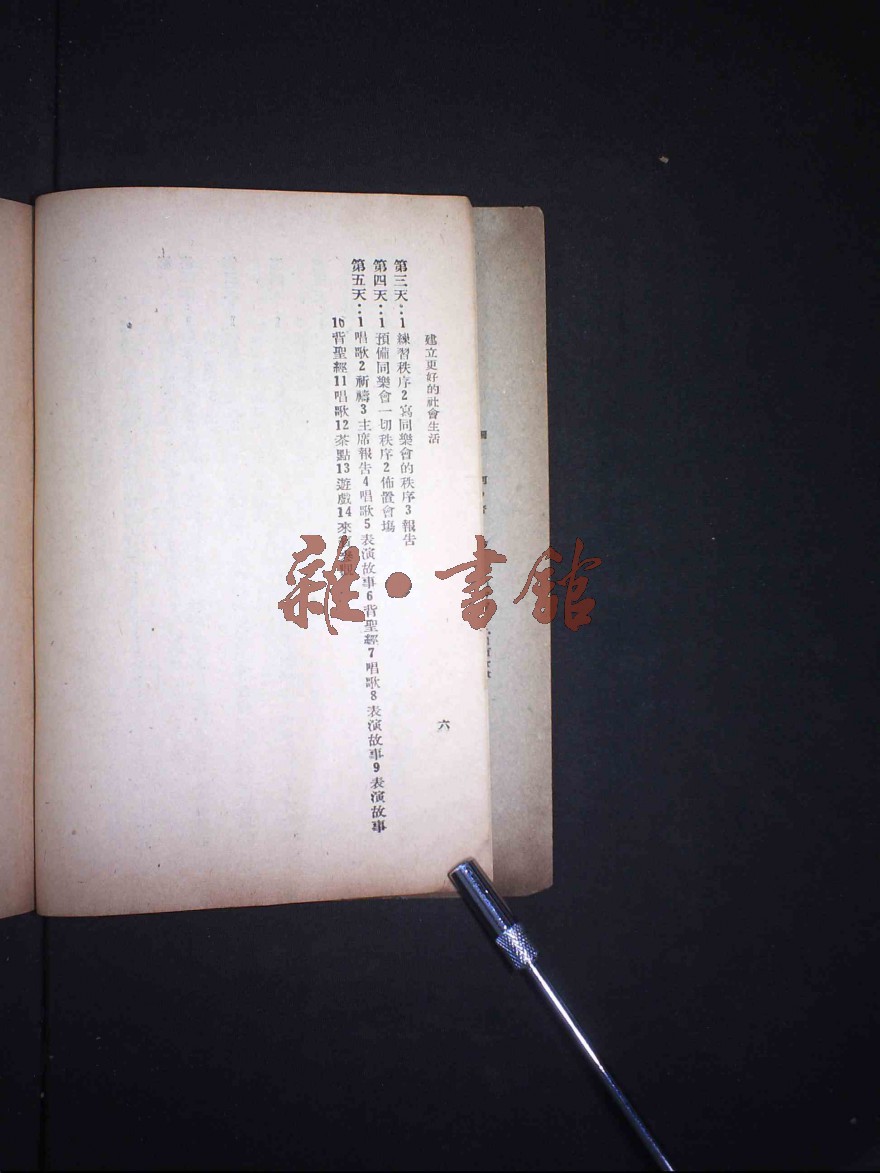 建立更好的社會生活
六
第三天：1練習秩序2寫同樂會的秩序3報告
第四天：1預備同樂會一切秩序2佈置會塲
第五天：1唱歌2祈禱3主席報告4唱歌5表演故事6背聖經7唱歌8表演故事9表演故事
16背聖經11唱歌12茶點13遊戲14來
雜•書館